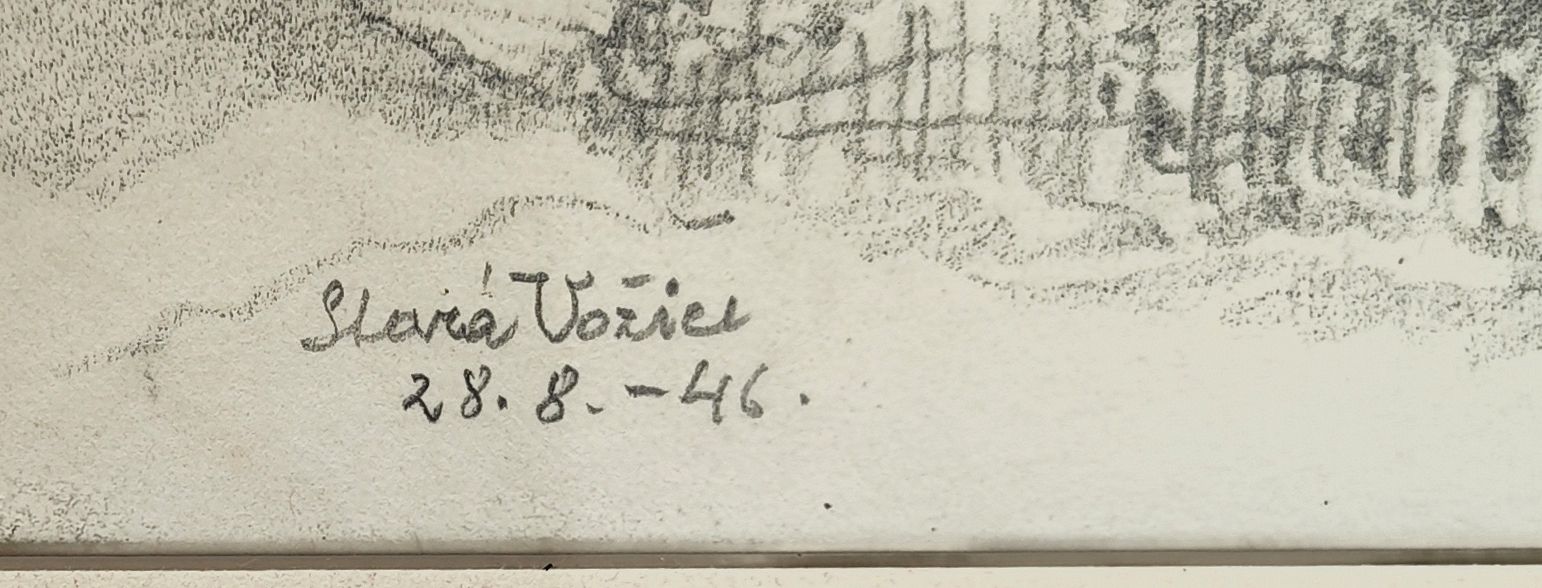 Stará Vožice
28. 8. - 46.